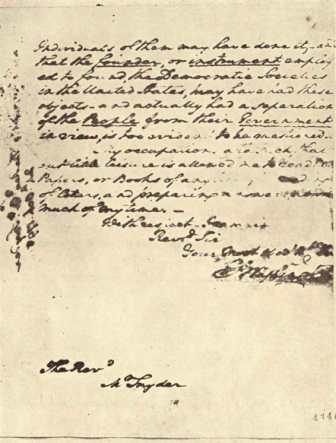 Individuals of them may have done it, and
that the founder, or instrument employ
ed to found, the Democratic Societies
in the United States, may have had these
objects - and actually had a separation
of the People from their Government
in view, is too evident to be questioned.
My occupations are such, that
little leisure is allowed me to read News
Papers, or Books of any
of letters, and preparing
much of my time. -
With respect, I am
Revd. Sir
Your Most Obed
Go Washington
The Revd
Mr Snyder